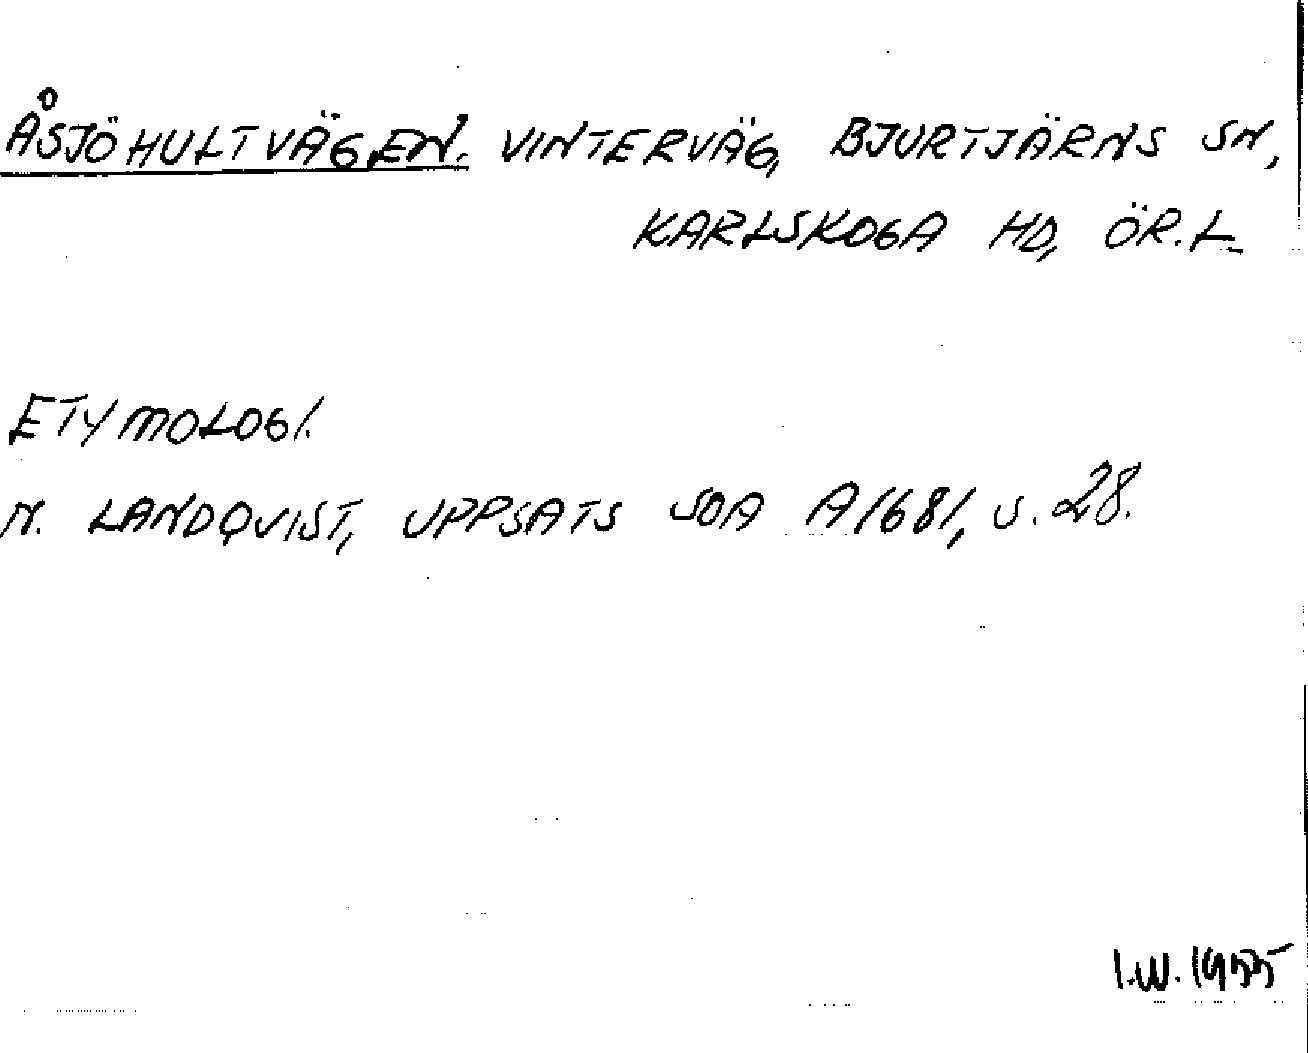 ÅSJÖHULTVÄGEN. VINTERVÄG, BJURTJÄRNS SN,
KARLSKOGA HD, ÖR.L.
ETYMOLOGI.
N. LANDQVIST, UPPSATS SOA A1681, S. 28.
I.W. 1955